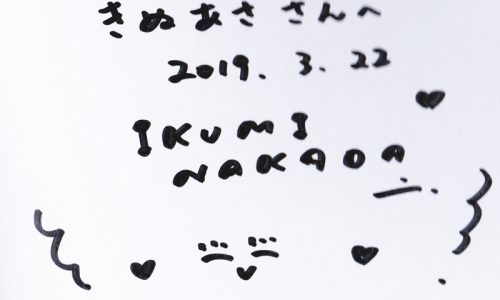 きぬあささんへ
2019. 3. 22
IKUMI
NAKADA